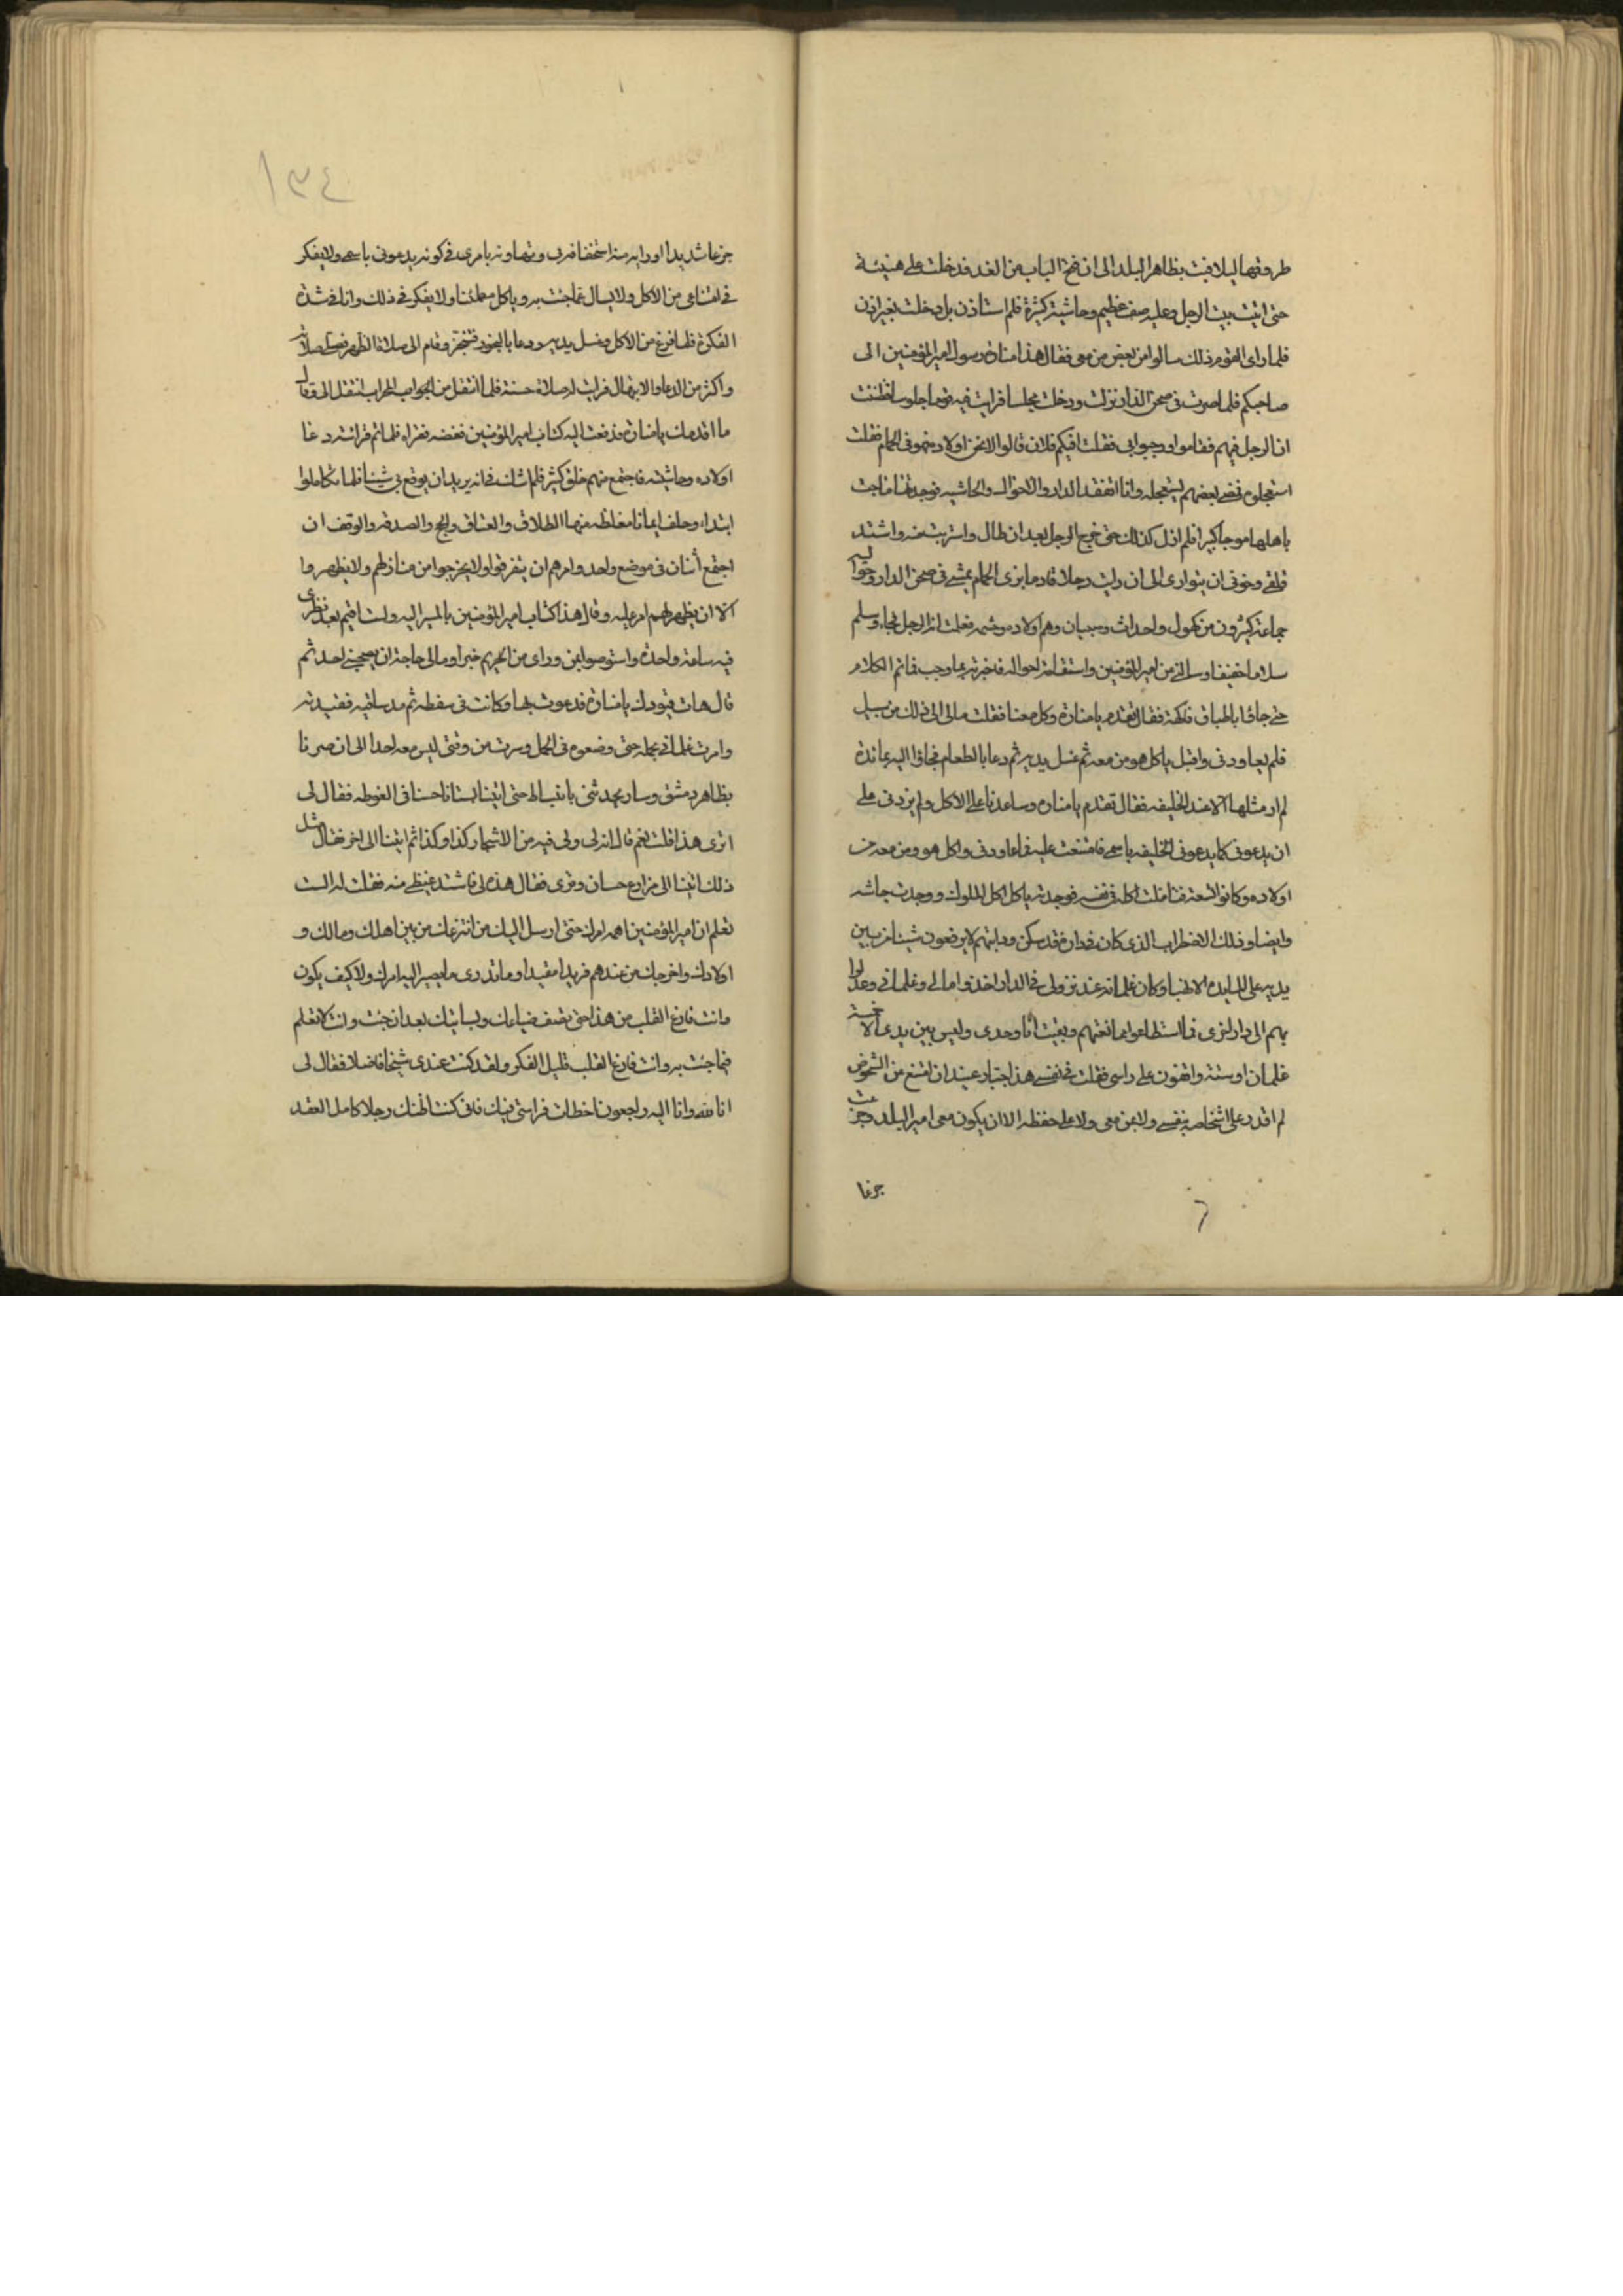 طروقتها ليلا فبت بظاهر البلد الى ان فتح الباب من الغد فدخلت على هيئة
حتى اتيت بيت الرجل وعليه صف عظيم وحاشية كثيرة فلم استاذن بل دخلت بغير اذن
فلما راى القوم ذلك سالوا من بعض من معى فقال هذا منارة رسول امير المؤمنين الى
صاحبكم فلما صرت فى صحن الدار نزلت ودخلت مجلسا فرايت فيه قوما جلوسا فظننت
ان الرجل فيهم فقاموا ورحبوا بى فقلت افيكم فلان قالوا لا نحن اولاده وهو فى الحمام فقلت
استعجلوه فمضى بعضهم يستعجله وانا اتفقد الدار والاحوال والحاشيه فوجدتها ماجت
باهلها موجا كبيرا فلم ازل كذلك حتى خرج الرجل بعد ان طال واستربت منه واشتد
قلقى وخوفى ان يتوارى الى ان رايت رجلا قادما بزى الحمام يمشى فى صحن الدار وحواليه
جماعة كثيرون من كهول واحداث وصبيان وهم اولاده وحشمه فعلت انه الرجل فجاء وسلم
سلاما خفيفا وسالنى عن امير المؤمنين واستقامة احواله فاخبرته بما وجب فما تم الكلام
حتى جاؤا باطباق فاكهة فقال تقدم يا منارة وكل معنا فقلت مالى الى ذلك من سبيل
فلم يعاودنى واقبل ياكل هو ومن معه ثم غسل يديه ثم دعا بالطعام فجاؤا اليه بمائدة
لم ار مثلها الا عند الخليفه فقال تقدم يا منارة وساعدنا على الاكل ولم يزدنى على
ان يدعونى كما يدعونى الخليفه باسمى فامتنعت عليه فما عاودنى واكل هو ومن معه من
اولاده وكانوا تسعة فتاملت اكله فى نفسه فوجدته ياكل اكل الملوك ووجدت جاشه
وايضا وذلك الاضطراب الذى كان فى داره قد سكن ورايتهم لا يرفعون شيئا من بين
يديه على المايدة الا نهبا وكان غلمانه عند نزولى فى الدار اخذوا مالى وغلمانى وعدلوا
بهم الى دار اخرى فما استطاعوا ممانعتهم وبقيت انا وحدى وليس بين يدى الا خمسة
غلمان او ستة واقفون على راسى فقلت فى نفسى هذا جبار عنيد ان امتنع من الشخوص
لم اقدر على اشخاصه بنفسى ولا بمن معى ولا على حفظه الا ان يكون معى امير البلد وجزعت
جزعا
١٣٤
جزعا شديدا اورابه منه استخفافه بى وتهاونه بامرى فى كونه يدعونى باسمى ولا يفكر
فى امتناعى من الاكل ولا يسال عما جئت به وياكل مطمئنا ولا يفكر فى ذلك وانا فى شدة
الفكرة فلما فرغ من الاكل وغسل يديه ودعا بالبخور فتبخر وقام الى صلاة الظهر فصلى صلاته
واكثر من الدعا والابتهال فرايت له صلاة حسنة فلما انتقل من المحراب انتقل الى وقال
ما اقدمك يا منارة فدفعت اليه كتاب امير المؤمنين ففضه فقراه فلما تم قراته دعا
اولاده وحاشيته فاجتمع منهم خلق كثير فلم اشك فى انه يريد ان يوقع بى شيئا فلما تكاملوا
ابتداء وحلف ايمانا مغلظة منها الطلاق والعتاق والحج والصدقه والوقف ان
اجتمع اثنان فى موضع واحد وامرهم ان يتفرقوا ولا يخرجوا من منازلهم ولا يظهروا
الا ان يظهر لهم امر عليه وقال هذا كتاب امير المؤمنين بالمسير اليه ولست اقيم بعد نظرى
فيه ساعة واحدة واستوصوا بمن وراى من الحريم خيرا ومالى حاجة ان يصحبنى احد ثم
قال هات قيودك يا منارة فدعوت بها وكانت فى سفط ثم مد ساقيه فقيدته
وامرت غلمانى بحمله حتى وضعوه فى المحمل وسرت من وقتى ليس معه احد الى ان صرنا
بظاهر دمشق وسار يحدثنى بانبساط حتى اتينا بستانا حسنا فى الغوطه فقال لى
اترى هذا قلت نعم قال انه لى ولى فيه من الاشجار كذا وكذا ثم اتينا الى اخر فقال مثل
ذلك اتينا الى مزارع حسان وقرى فقال هذه لى فاشتد غيظى منه فقلت له الست
تعلم ان امير المؤمنين اهمه امرك حتى ارسل اليك من انتزعك من بين اهلك ومالك و
اولادك واخرجك من عندهم فريدا مقيدا وما تدرى ما يصير اليه امرك ولا كيف يكون
وانت فارغ القلب من هذا حتى تصف ضياعك وبساتينك بعد ان جئت وانت لا تعلم
فيما جئت به وانت فارغ القلب قليل الفكر ولقد كنت عندى شيخا فاضلا فقال لى
انا لله وانا اليه راجعون اخطات فراستى فيك فانى كنت اظنك رجلا كامل العقل